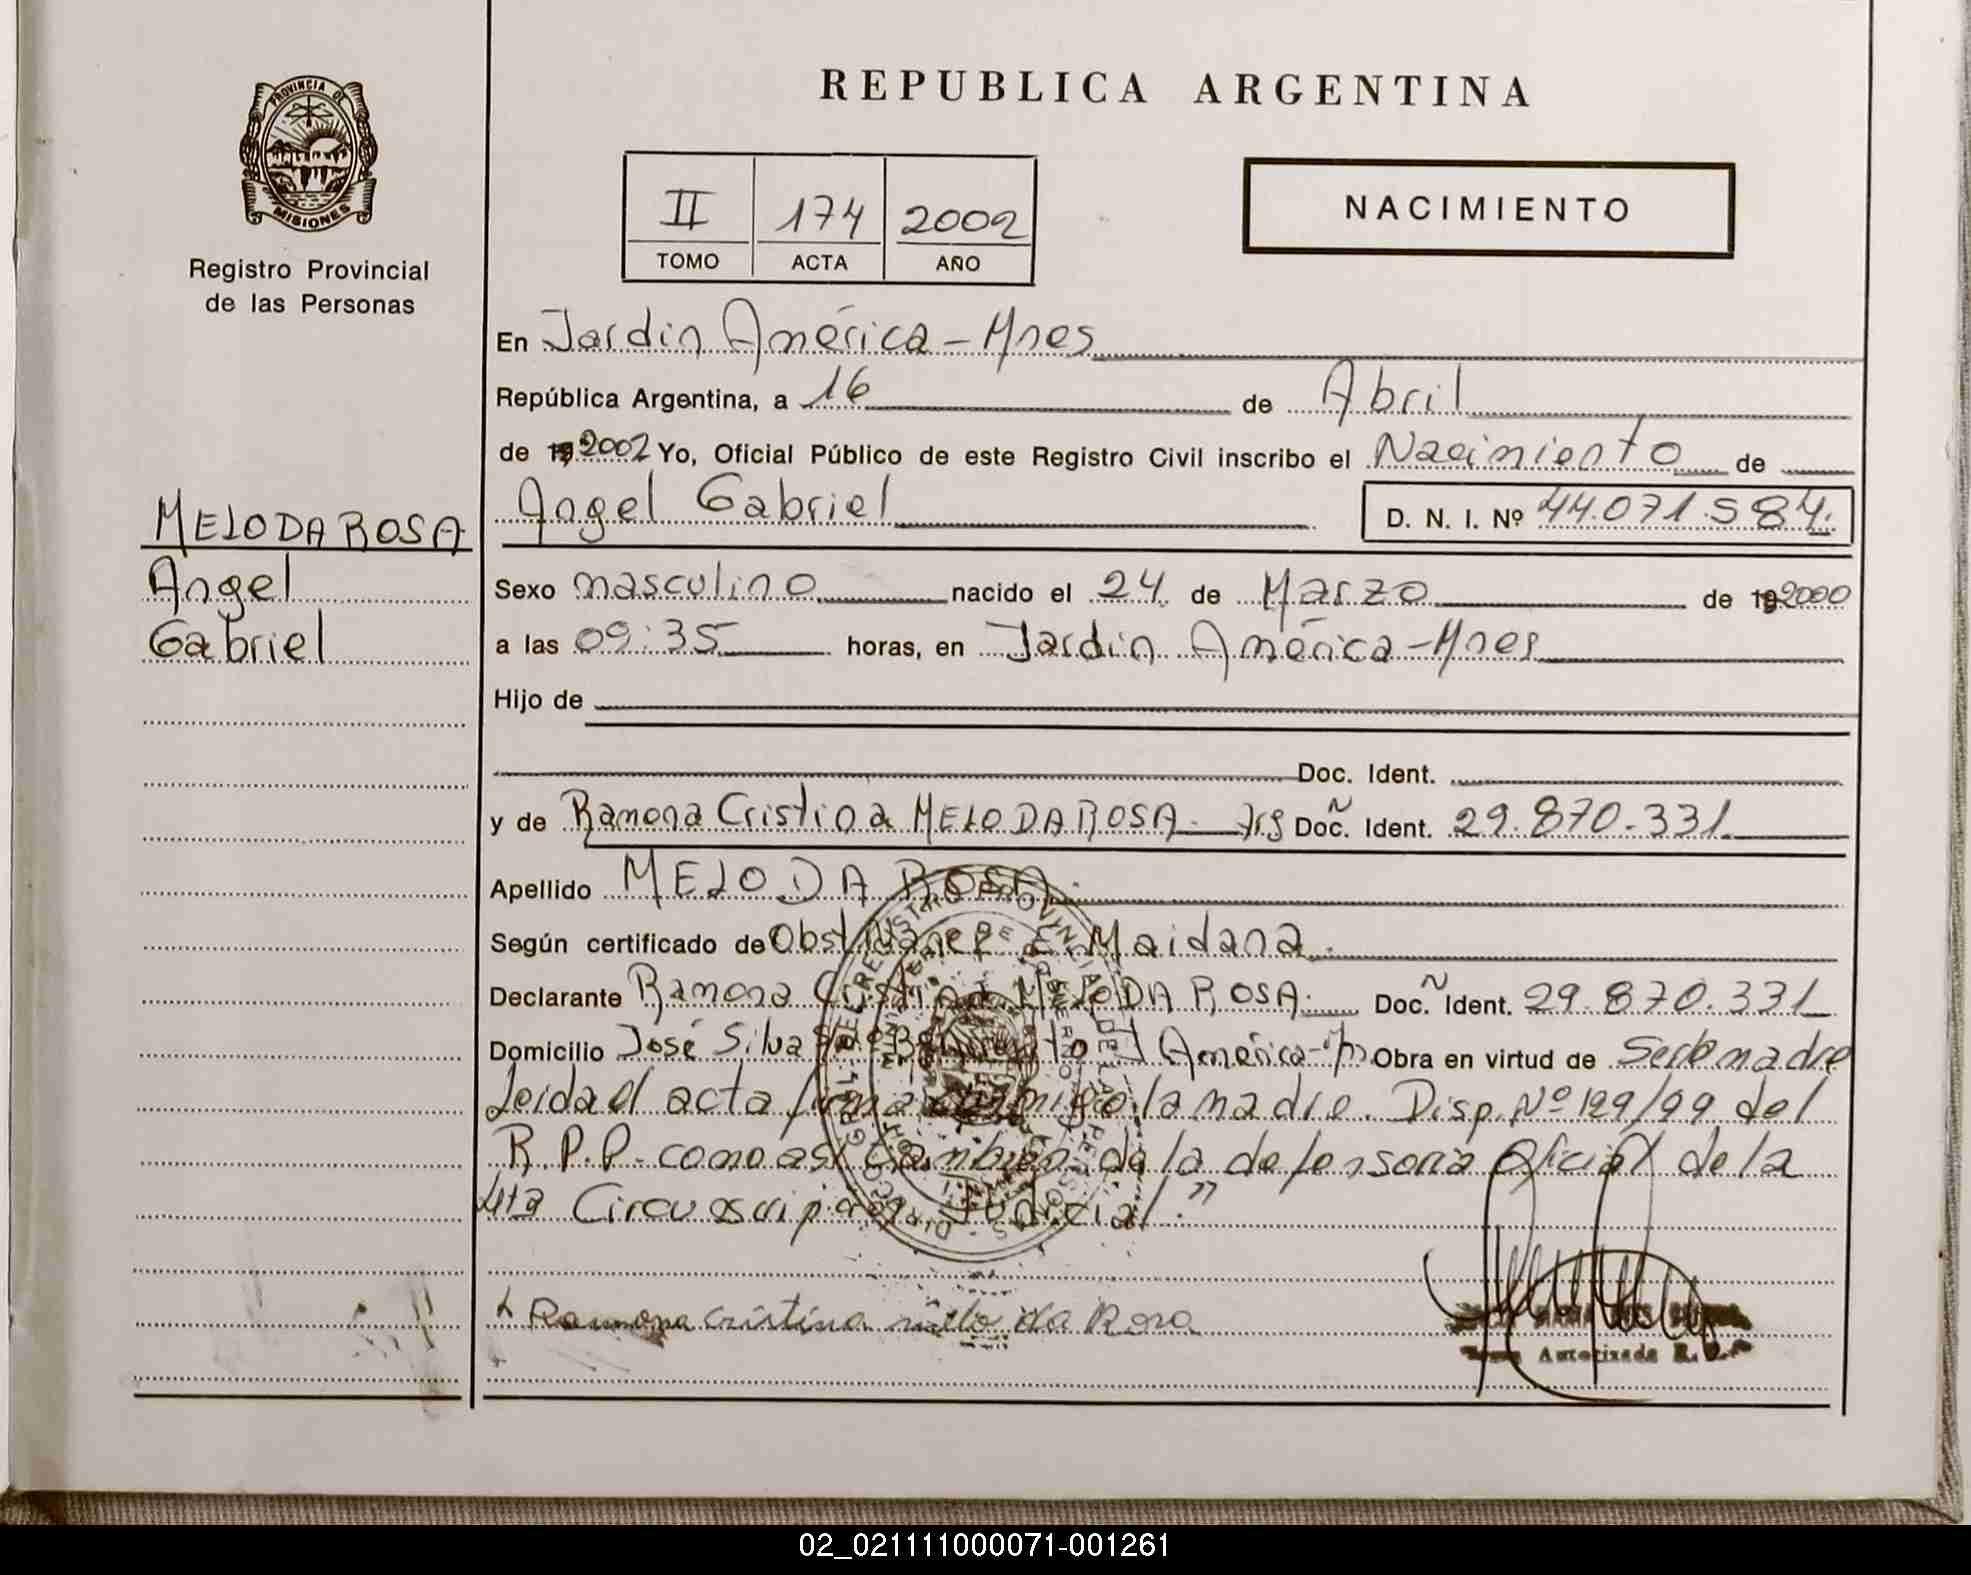 REPUBLICA ARGENTINA
PROVINCIA DE
MISIONES
Registro Provincial
de las Personas
II 174 2002
TOMO ACTA AÑO
NACIMIENTO
En Jardin América - Mnes
República Argentina, a 16 de Abril
de 19 2002 Yo, Oficial Público de este Registro Civil inscribo el Nacimiento de
Angel Gabriel D. N. I. Nº 44.071.584.
MELO DA ROSA
Angel
Gabriel
Sexo masculino nacido el 24 de Marzo de 19 2000
a las 09:35 horas, en Jardin América - Mnes
Hijo de
Doc. Ident.
y de Ramona Cristina MELO DA ROSA - Arg Doc. Ident. 29.870.331
Apellido MELO DA ROSA.
Según certificado de Obst E. Maidana.
Declarante Ramona Cristina MELO DA ROSA. Doc. Ident. 29.870.331
Domicilio José Silva J América Obra en virtud de Ser la madre
Leida el acta firma conmigo la madre. Disp. Nº 129/99 del
R.P.P. como así también de la defensoria Oficial de la
4ta Circunscripción Judicial."
Ramona cristina melo da Rosa
Autorizada
02_021111000071-001261